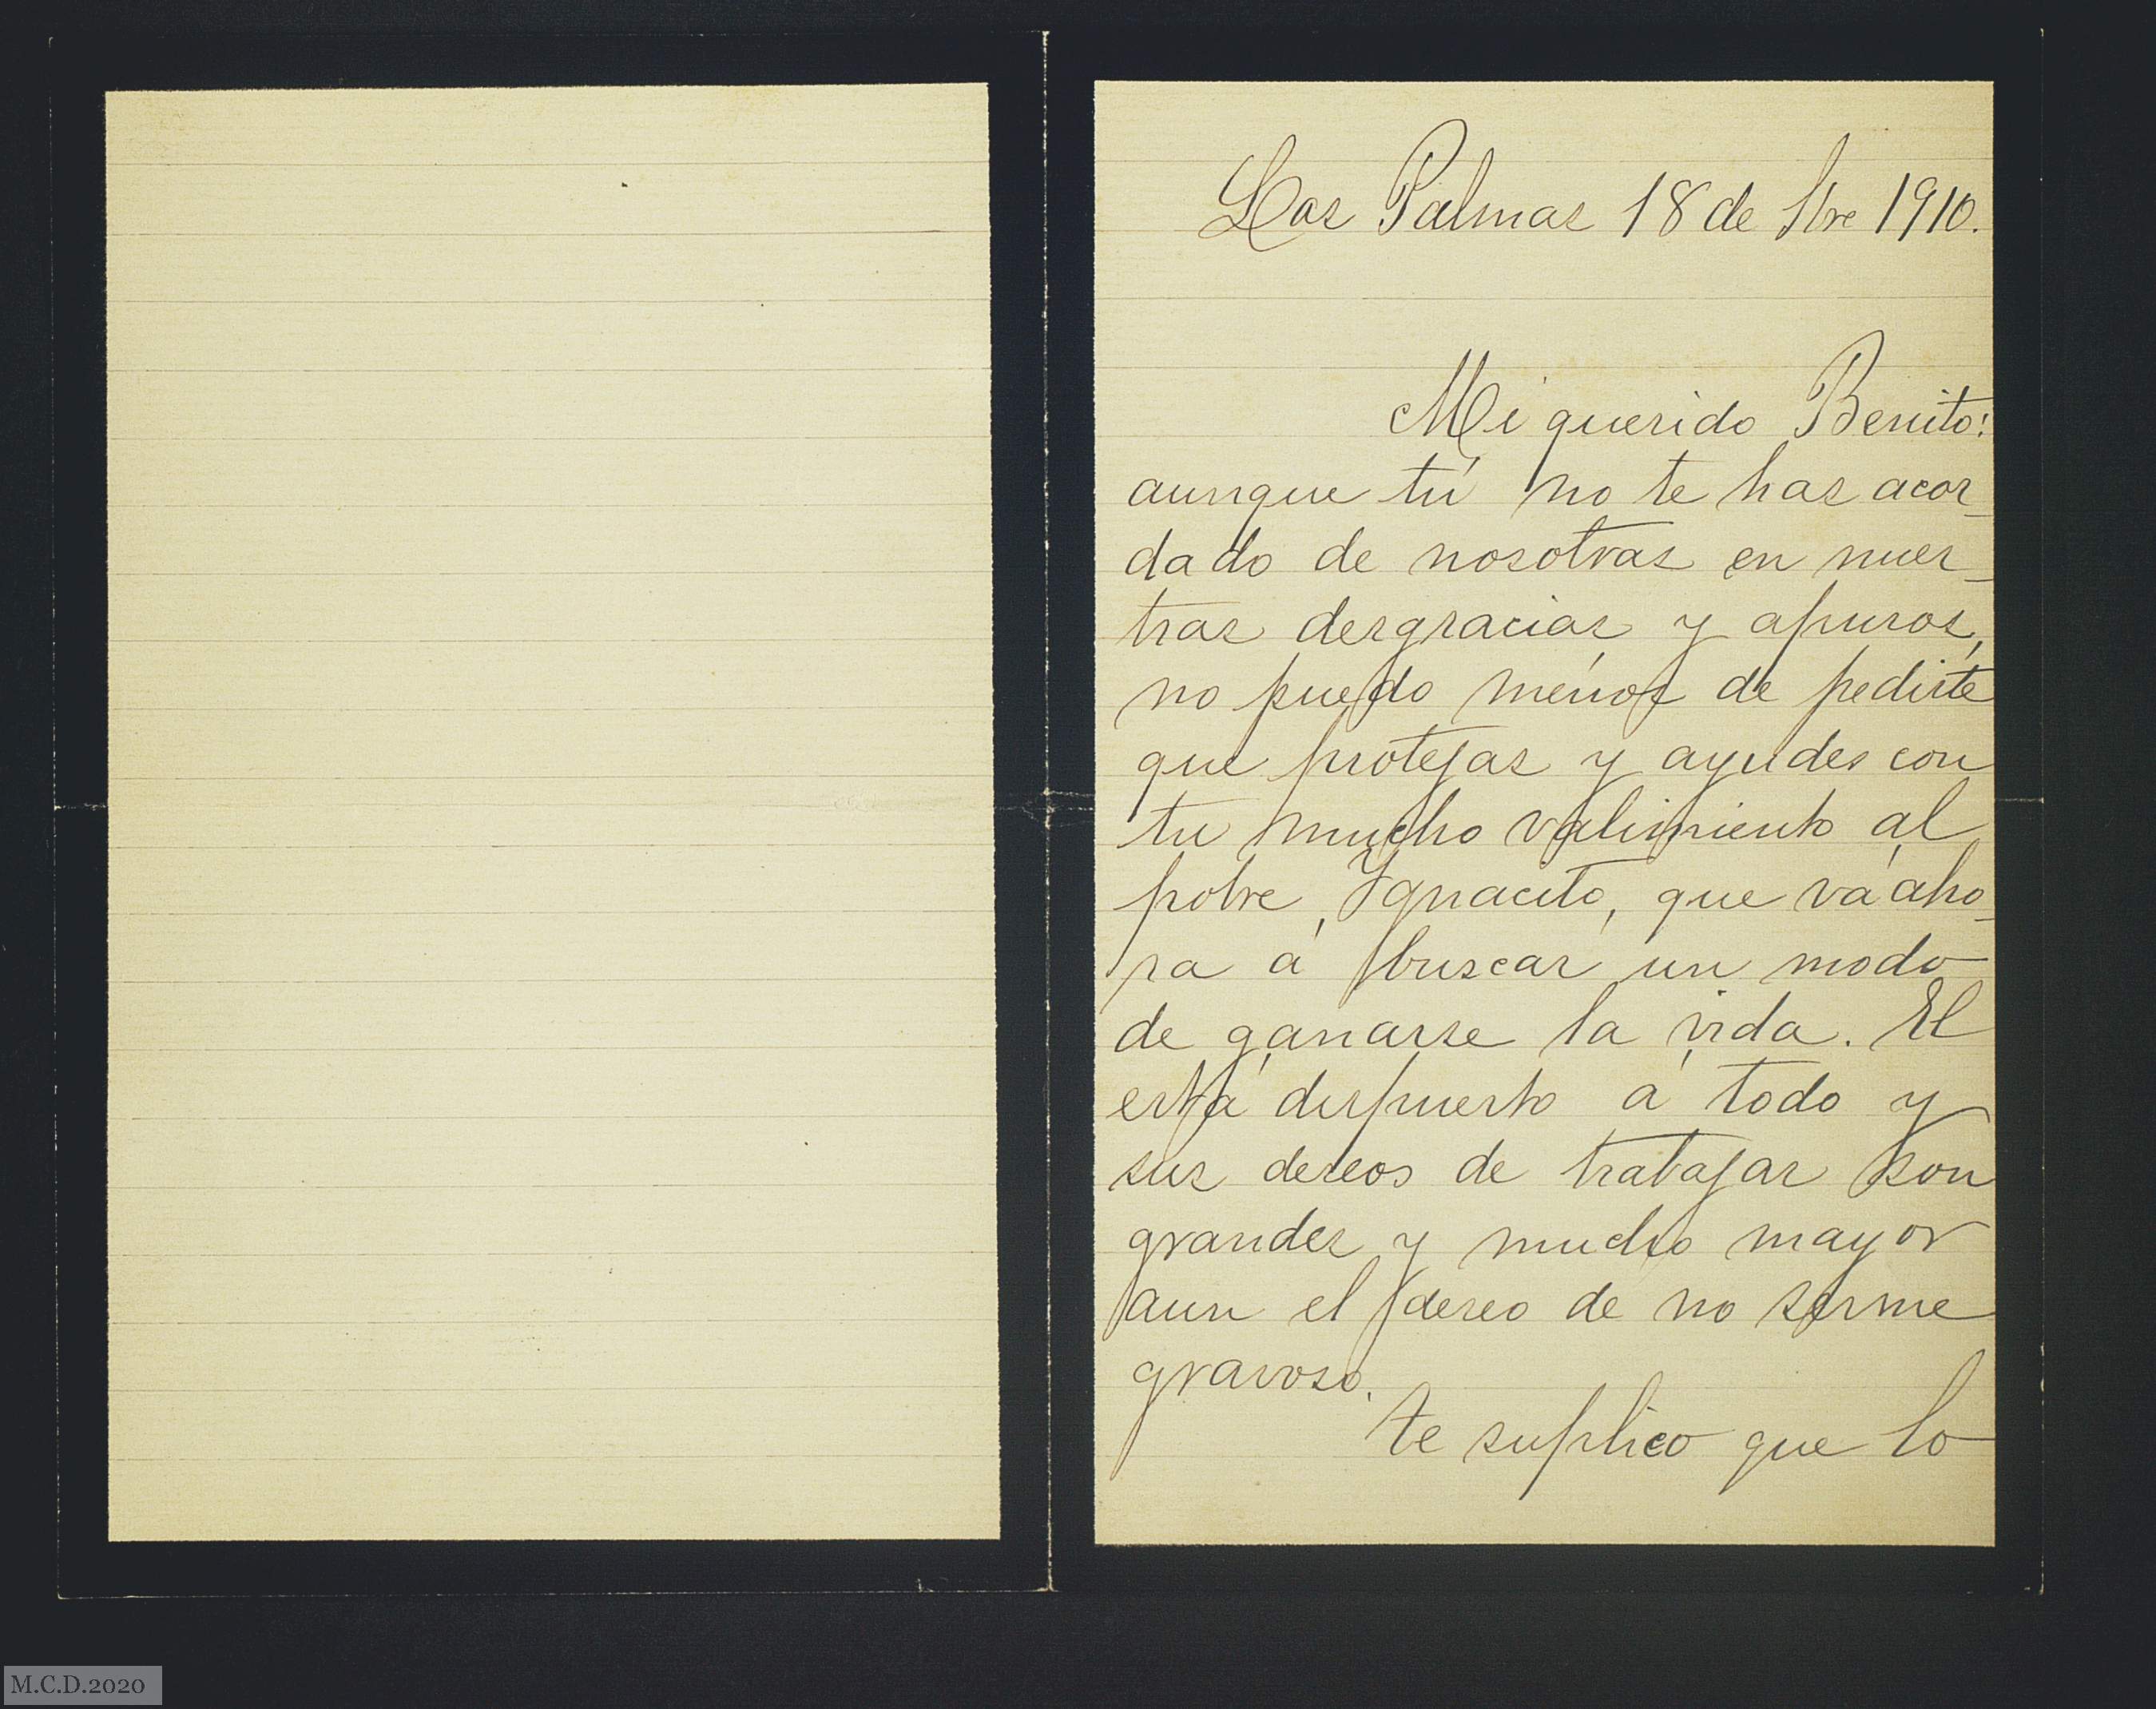 Las Palmas 18 de Sbre 1910.
Mi querido Benito:
aunque tú no te has acor_
dado de nosotras en nues_
tras desgracias y apuros,
no puedo ménos de pedirte
que protejas y ayudes con
tu mucho valimiento al
pobre Ygnacito, que vá aho_
ra á buscar un modo
de ganarse la vida. El
está dispuesto á todo y
sus deseos de trabajar son
grandes y mucho mayor
aun el deseo de no serme
gravoso.
te suplico que lo
M.C.D.2020